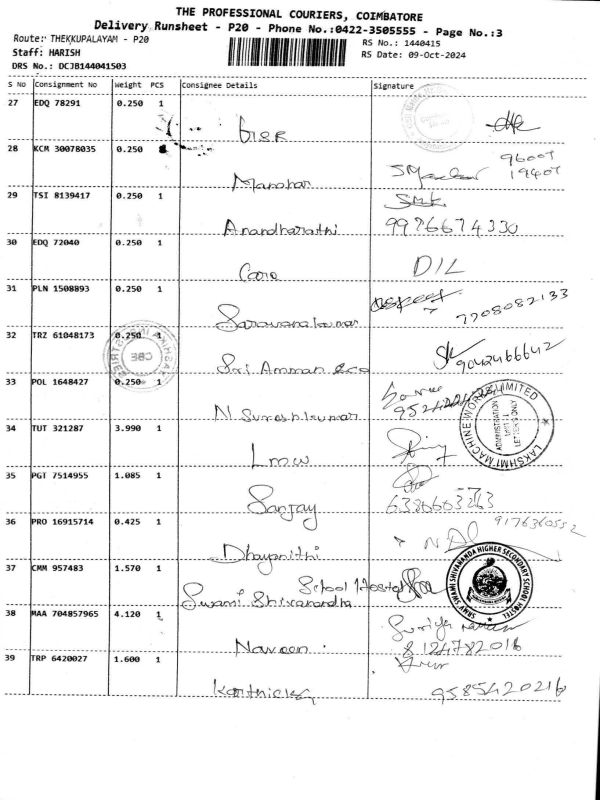 THE PROFESSIONAL COURIERS, COIMBATORE
Delivery Runsheet - P20 - Phone No.:0422-3505555 - Page No.:3
Route: THEKKUPALAYAM - P20
RS No.: 1440415
Staff: HARISH
RS Date: 09-Oct-2024
DRS No.: DCJB144041503
S No Consignment No Weight PCS Consignee Details Signature
27 EDQ 78291 0.250 1
28 KCM 30078035 0.250
Manohar
29 TSI 8139417 0.250 1
Anandharathi 9976674330
30 EDQ 72040 0.250 1
Caro DIL
31 PLN 1508893 0.250 1
Saravanakumar 7708082133
32 TRZ 61048173 0.250 1
Sri Amman eco 9042466642
33 POL 1648427 0.250 1
N Sureshkumar
LAKSHMI MACHINE WORKS LIMITED
ADMINISTRATION
LETTERS ONLY
34 TUT 321287 3.990 1
LMW
35 PGT 7514955 1.085 1
Sanjay 6380603263
36 PRO 16915714 0.425 1
9176360552
Dhayanithi
37 CMM 957483 1.570 1
School Hostel
Swami Shivanandha
SRMV SWAMI SHIVANANDA HIGHER SECONDARY SCHOOL HOSTEL
38 MAA 704857965 4.120 1
Naveen 8124782016
39 TRP 6420027 1.600 1
Karthick 9585420216